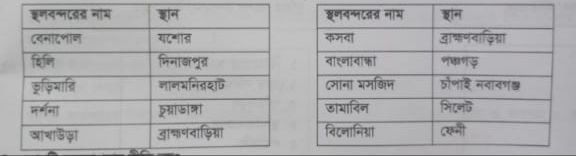 স্থলবন্দরের নাম স্থান
বেনাপোল যশোর
হিলি দিনাজপুর
বুড়িমারি লালমনিরহাট
দর্শনা চুয়াডাঙ্গা
আখাউড়া ব্রাহ্মণবাড়িয়া
স্থলবন্দরের নাম স্থান
কসবা ব্রাহ্মণবাড়িয়া
বাংলাবান্ধা পঞ্চগড়
সোনা মসজিদ চাঁপাই নবাবগঞ্জ
তামাবিল সিলেট
বিলোনিয়া ফেনী